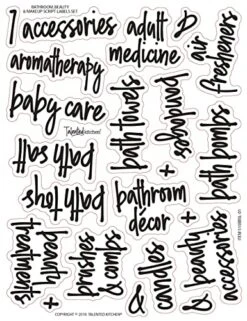 BATHROOM, BEAUTY
& MAKEUP SCRIPT LABELS SET
1 accessories
adult
medicine
&
air
fresheners
aromatherapy
baby care
Talented Kitchen
bath towels
bandages
+
bath bombs
bath salt
bath toys
bathroom
décor +
bath
treatments
+
brushes
& combs
&
& candles
& beauty
accessories
COPYRIGHT © 2018 TALENTED KITCHEN